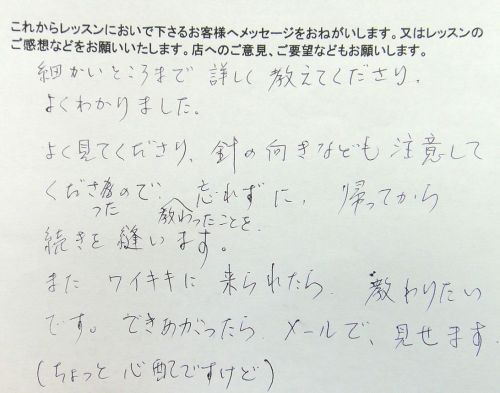 これからレッスンにおいで下さるお客様へメッセージをおねがいします。又はレッスンの
ご感想などをお願いいたします。店へのご意見、ご要望などもお願いします。
細かいところまで 詳しく 教えてくださり、
よくわかりました。
よく見てくださり、針の向きなども 注意して
くださったので、教わったことを忘れずに、帰ってから
続きを 縫います。
また ワイキキに 来られたら、教わりたい
です。できあがったら、メールで、見せます。
(ちょっと 心配ですけど)